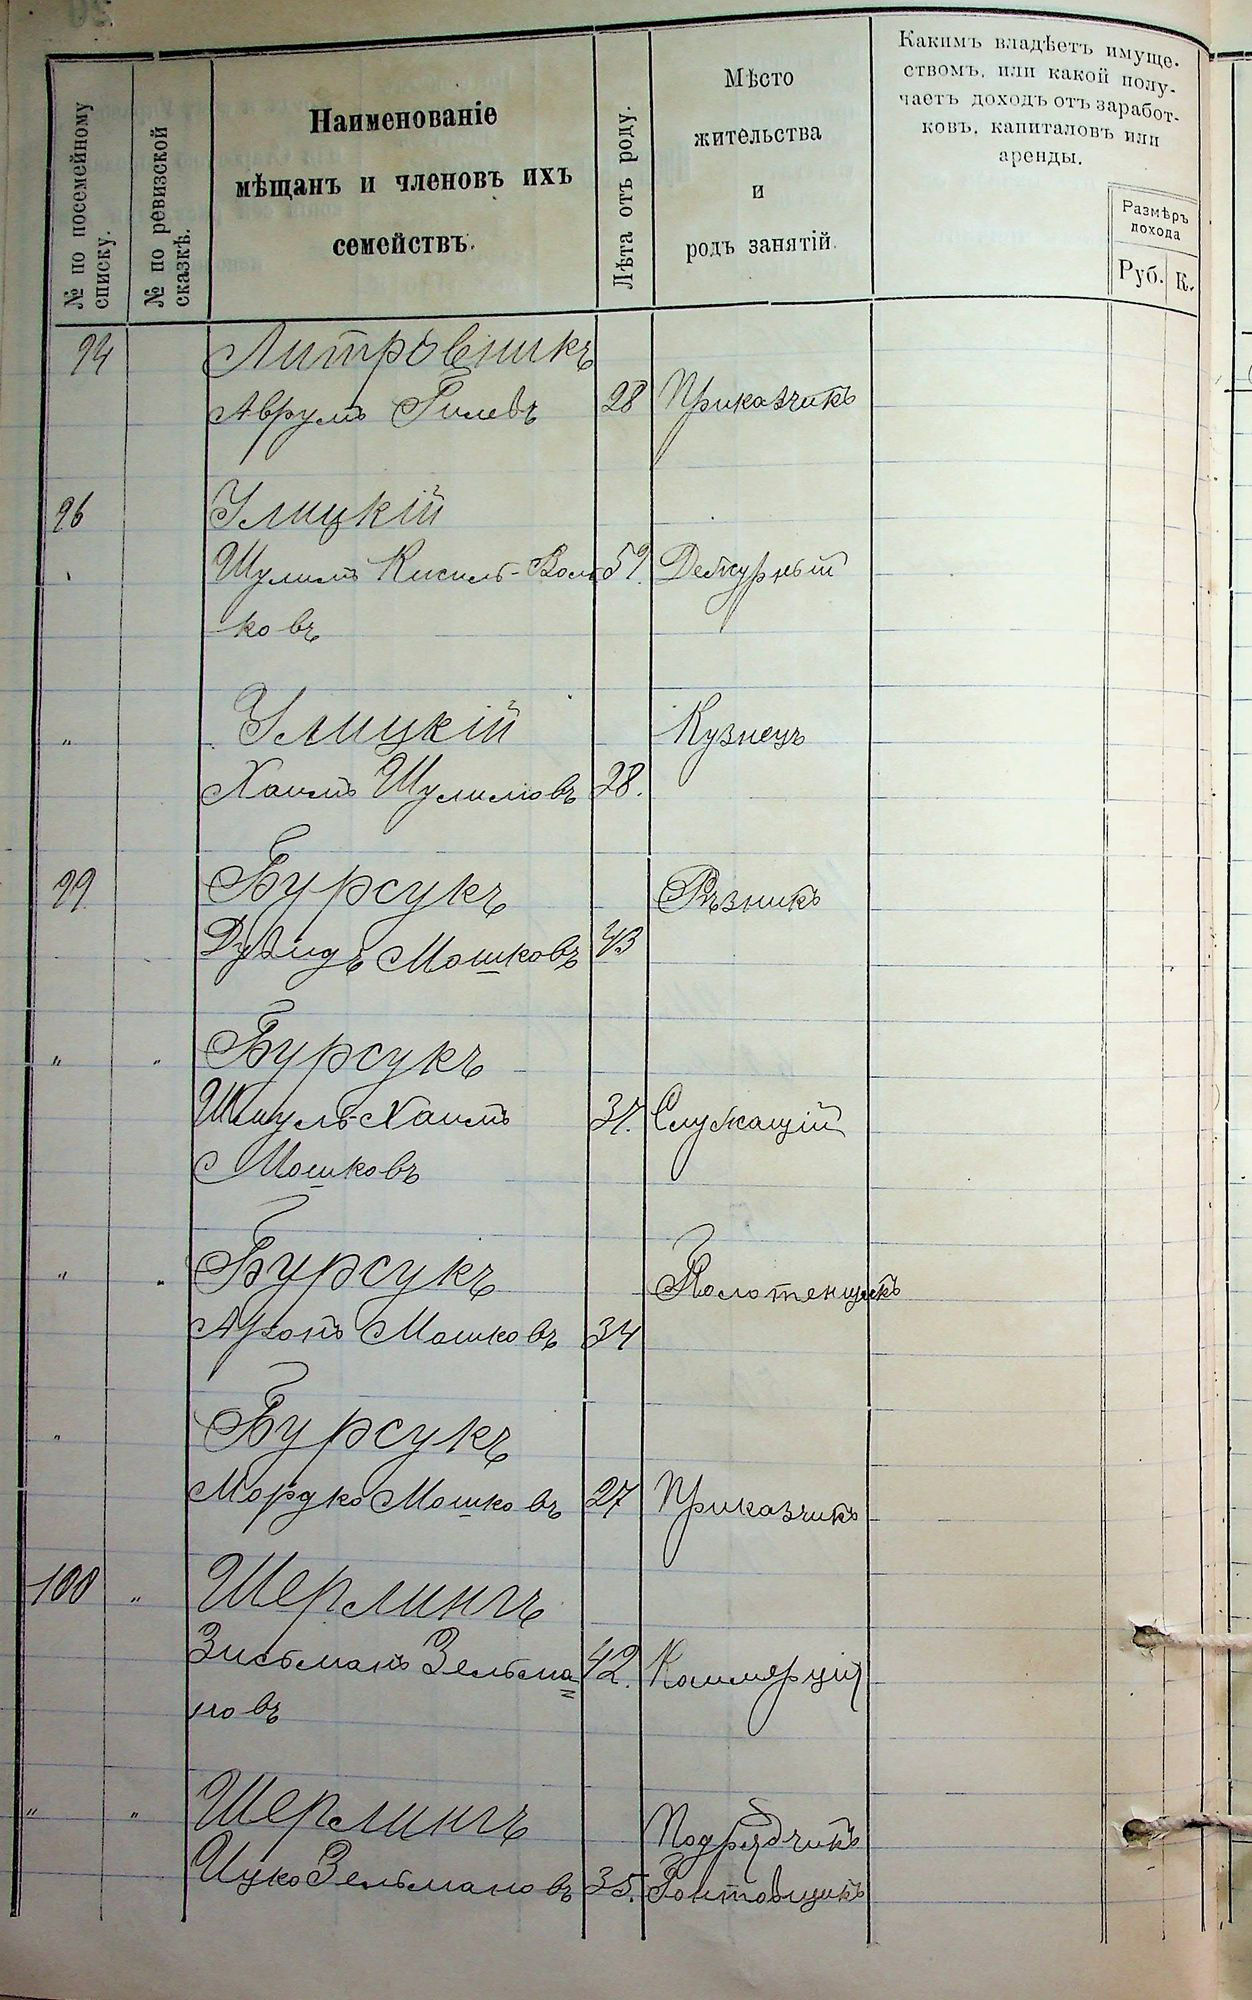 № по посемейному списку.
№ по ревизской сказкѣ.
Наименованіе
мѣщанъ и членовъ ихъ
семействъ.
Лѣта отъ роду.
Мѣсто
жительства
и
родъ занятій.
Какимъ владѣетъ имуще-
ствомъ, или какой полу-
чаетъ доходъ отъ заработ-
ковъ, капиталовъ или
аренды.
Размѣръ
дохода
Руб. К.
94 Литровникъ
Аврумъ Гилевъ 28 Приказчикъ
96 Улицкій
Шулимъ Кисиль-Воль 59. Дежурный
ковъ
„ Улицкій Кузнецъ
Хаимъ Шулимовъ 28.
99 Бурсукъ Рѣзникъ
Дувидъ Мошковъ 43
„ „ Бурсукъ
Шмуль-Хаимъ 37. Служащій
Мошковъ
„ „ Бурсукъ
Аронъ Мошковъ 34
„ Бурсукъ
Мордко Мошковъ 27 Приказчикъ
100 „ Шерлингъ
Зисьманъ Зельма= 42. Коммерція
новъ
„ „ Шерлингъ Подрядчикъ
Ицко Зельмановъ 35. Гонтовщикъ